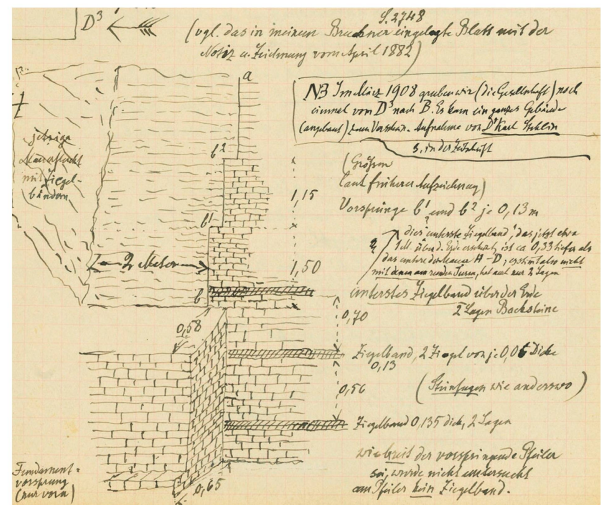 D³
S. 2748
(vgl. das in meinem Bruckner eingelegte Blatt mit der
Notiz u. Zeichnung vom April 1882)
a
NB Im März 1908 graben wir (die Gesellschaft) noch
einmal von D³ nach B. Es kam ein ganzes Gebäude
(angebaut) zum Vorschein. Aufnahme von Dr Karl Stehlin
s. in der Zeitschrift
jetzige
Mauerflucht
mit Ziegel-
bändern
b²
b¹
b
2 Meter
1,15
1,50
(Größen
laut früherer Aufzeichnung)
Vorsprünge b¹ und b² je 0,13 m
dies unterste Ziegelband, das jetzt etwa
ist ca 0,33 tiefer als
das untere der A-D; nicht
mit hat nur 2 Lagen
unterstes Ziegelband über der Erde
2 Lagen Backsteine
0,70
0,58
Ziegelband, 2 Ziegel von je 0,06 Dicke
0,13
0,56
(Steinlagen wie anderswo)
Ziegelband 0,135 dick, 2 Lagen
wie breit der vorspringende Pfeiler
sei, wurde nicht untersucht
am Pfeiler kein Ziegelband.
Fundament-
vorsprung
(nur vorn)
0,65